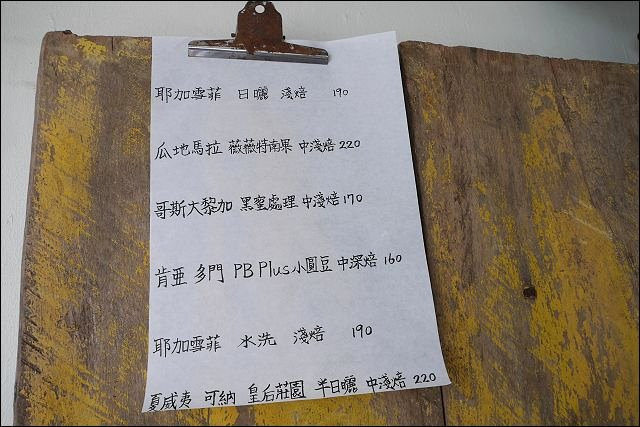 耶加雪菲 日曬 淺焙 190
瓜地馬拉 薇薇特南果 中淺焙 220
哥斯大黎加 黑蜜處理 中淺焙 170
肯亞 多門 PB Plus 小圓豆 中深焙 160
耶加雪菲 水洗 淺焙 190
夏威夷 可納 皇后莊園 半日曬 中淺焙 220